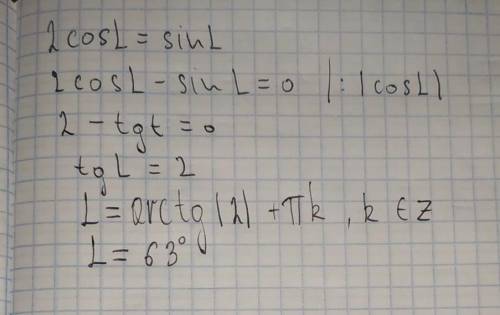 2cosL = sinL
2cosL - sinL = 0 |:(cosL)
2 - tgt = 0
tgL = 2
L = arctg(2) + πk, k ∈ Z
L = 63°